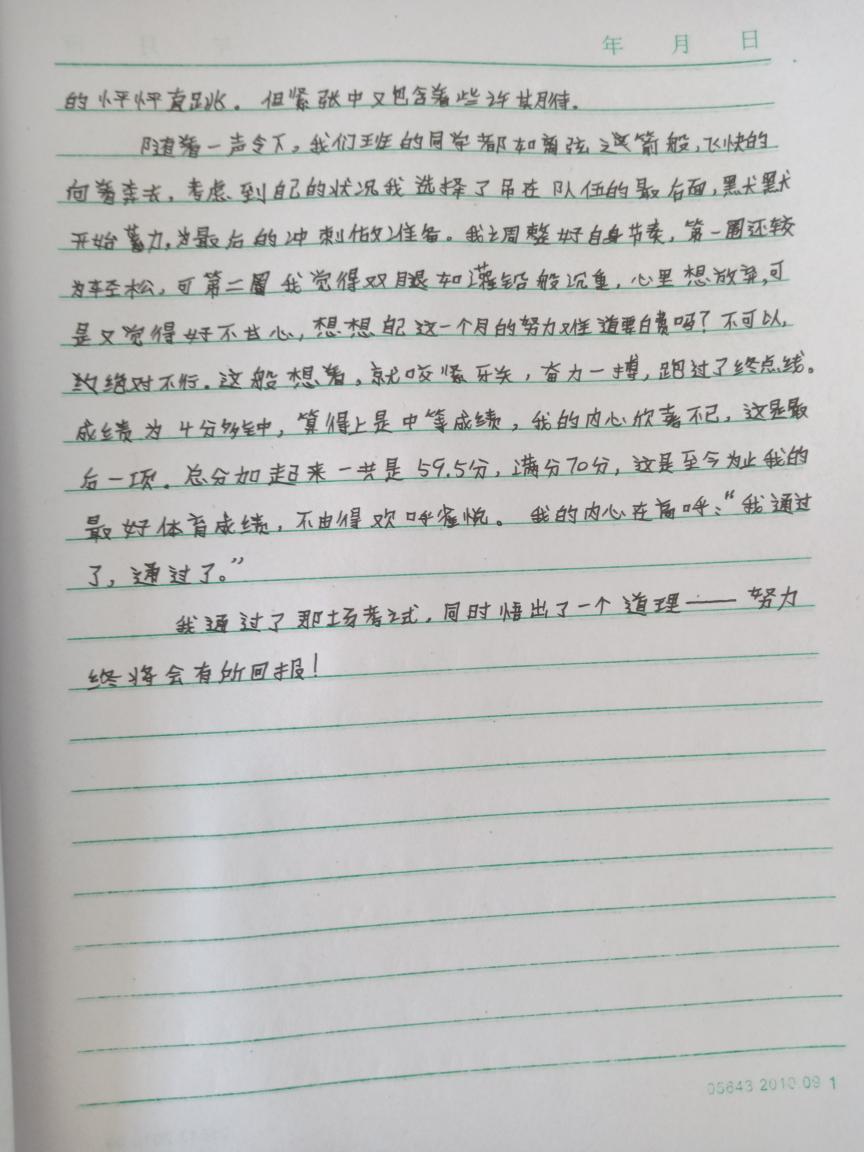 年 月 日
的怦怦直跳。但紧张中又包含着些许期待。
随着一声令下，我们班的同学都如离弦之箭般，飞快的
向着奔去，考虑到自己的状况我选择了吊在队伍的最后面，默默
开始蓄力，为最后的冲刺做准备。我调整好自身节奏，第一圈还较
为轻松，可第二圈我觉得双腿如灌铅般沉重，心里想放弃，可
是又觉得好不甘心，想想自己这一个月的努力难道要白费吗？不可以，
绝对不行。这般想着，就咬紧牙关，奋力一搏，跑过了终点线。
成绩为4分多钟，算得上是中等成绩，我的内心欣喜不已，这是最
后一项。总分加起来一共是59.5分，满分70分，这是至今为止我的
最好体育成绩，不由得欢呼雀悦。我的内心在高呼：“我通过
了，通过了。”
我通过了那场考试，同时悟出了一个道理——努力
终将会有所回报！
05643 2010.09 1